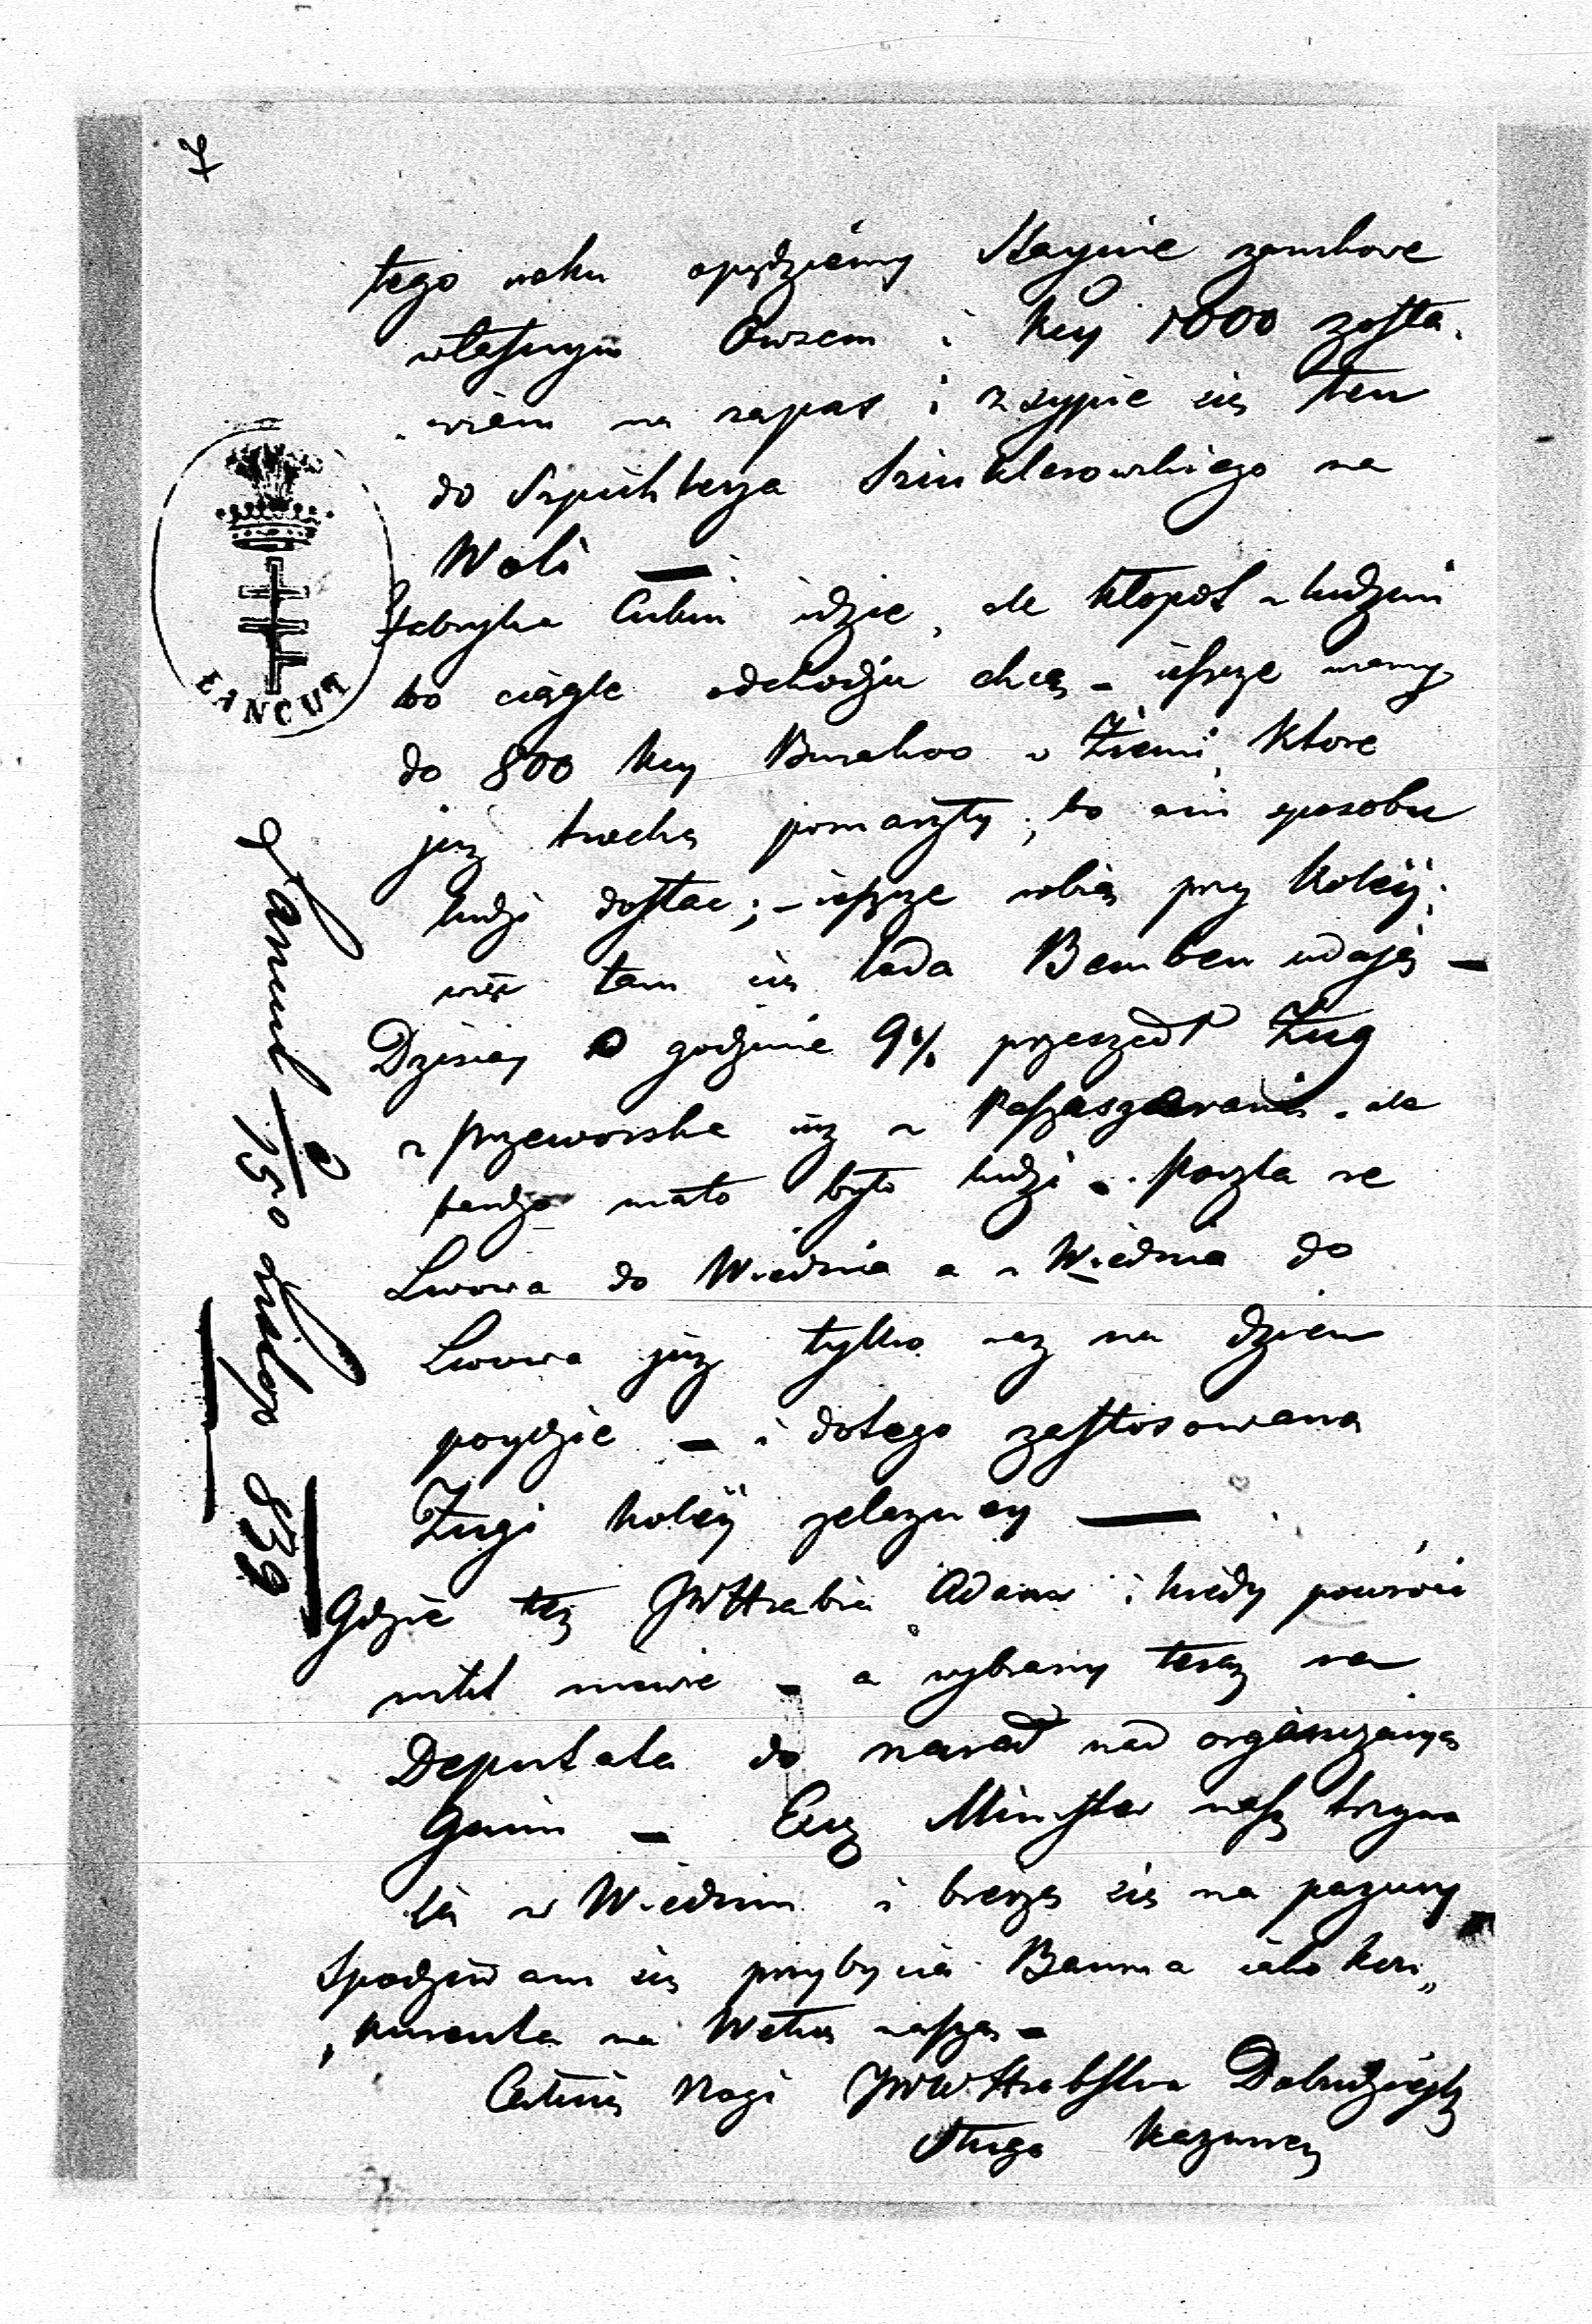 7
tego roku opędziemy Staynie zamkowe
własnym Owsem i kcy 1000 zosta-
-wiem na zapas i zsypie się ten
do Szpichlerza na
Woli —
Fabryka Cukru idzie, ale kłopot z ludzmi
bo ciągle odchodzić chcą – ieszcze mamy
do 800 kcy Burakow w Ziemi, ktore
już trochę pomarzły; bo ani sposobu
ludzi dostac; – ieszcze robią przy Koleij;
więc tam się lada Bemben udają –
Dzisiay o godzinie 9 przeszedł Zug
z Przeworska już z Passazerami, ale
bardzo mało było ludzi –. Poczta ze
Lwowa do Wiednia a z Wiednia do
Lwowa już tylko raz na dzien
poydzie – i dotego zastosowana
Zugi koleij zelezney —
Gdzie też JWHrabia Adam i kiedy powróci
nikt niewie – a wybrany teraz na
Deputata do narad nad organizacyą
Gmin – Czy Minister nasz trzyma
się w Wiedniu i bierze się na pazury
Spodziwam się przybycia Bauma iako kon„
„kurenta na Wełnę naszą –
Całuię Nogi JWW Hrabstwa Dobrodzieystwa
sługa
ŁAŃCUT
Łancut 15go 839